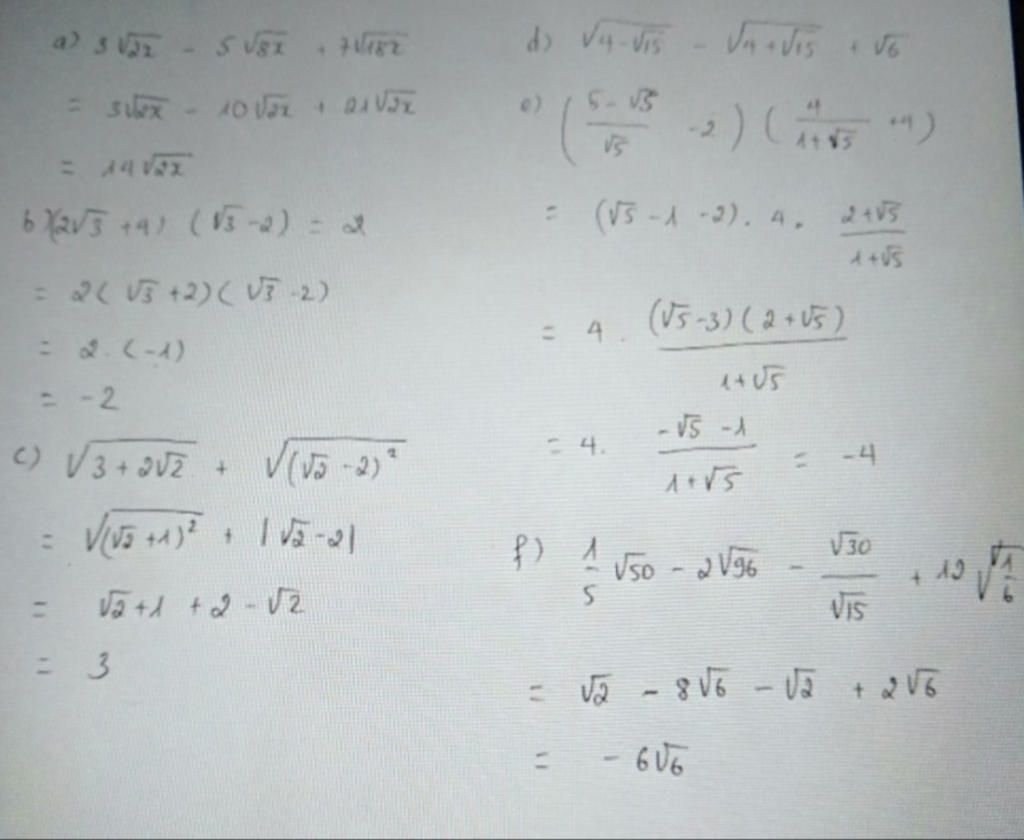 a) 3√2x - 5√8x + 7√18x
= 3√2x - 10√2x + 21√2x
= 14√2x
b) (2√3 + 4) (√3 - 2) = 2
= 2(√3 + 2)(√3 - 2)
= 2. (-1)
= -2
c) √3 + 2√2 + √(√2 - 2)²
= √(√2 + 1)² + |√2 - 2|
= √2 + 1 + 2 - √2
= 3
d) √4 - √15 - √4 + √15 + √6
e) (5 - √5/√5 - 2) (4/1 + √5 + 4)
= (√5 - 1 - 2). 4. 2 + √5/1 + √5
= 4. (√5 - 3)(2 + √5)/1 + √5
= 4. -√5 - 1/1 + √5 = -4
f) 1/5 √50 - 2√96 - √30/√15 + 12√1/6
= √2 - 8√6 - √2 + 2√6
= - 6√6